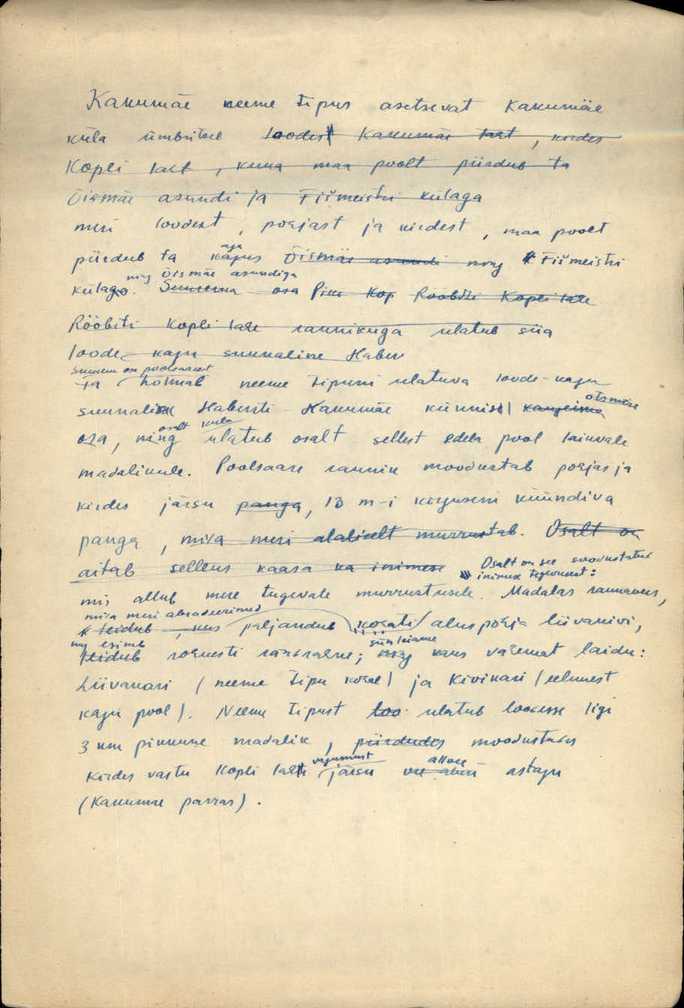 Kakumäe neeme tipus asetsevat Kakumäe
küla ümbritseb loodest Kakumäe laht, kirdes
Kopli laht, kuna maa poolt piirdub ta
Õismäe asundi ja Tišmeistri külaga
meri loodest, põhjast ja kirdest, maa poolt
piirdub ta aga kagus Õismäe asundi ning Tišmeistri
külaga. ning Õismäe asundiga Suurema osa Kop Kopli lahe
Kopli lahe rannikuga ulatub siia
loode-kagu suunaline Haber
Suurem osa poolsaarest
ta hõlmab neeme tipuni ulatuva loode-kagu
suunalise Habersti-Kakumäe künnise otsmine
osa, ning osalt küla ulatub osalt sellest edela pool laiuvale
madalikule. Poolsaare rannik moodustab põhjas ja
kirdes järsu panga, 18 m-i kõrguseni küündiva
panga, mida meri alaliselt murrutab. Osalt on
aitab selleks kaasa ka inimese Osalt on see soodustatud
inimese tegevusest:
mis allub mere tugevale murrutusele. Madalas rannavees,
mida meri abradeerinud
leidub, kus paljandub kohati aluspõhja liivakivi,
ning esineb siin leiame
leidub rohkesti randrahne; ning kaks vähemat laidu:
Liivakari (neeme tipu kohal) ja Kivikari (eelmisest
kagu pool). Neeme tipust loo ulatub loodesse ligi
3 km pikkune madalik, piirdudes moodustades
kirdes vastu Kopli lahte sügavust järsu allvee astangu
(Kakumäe parras).